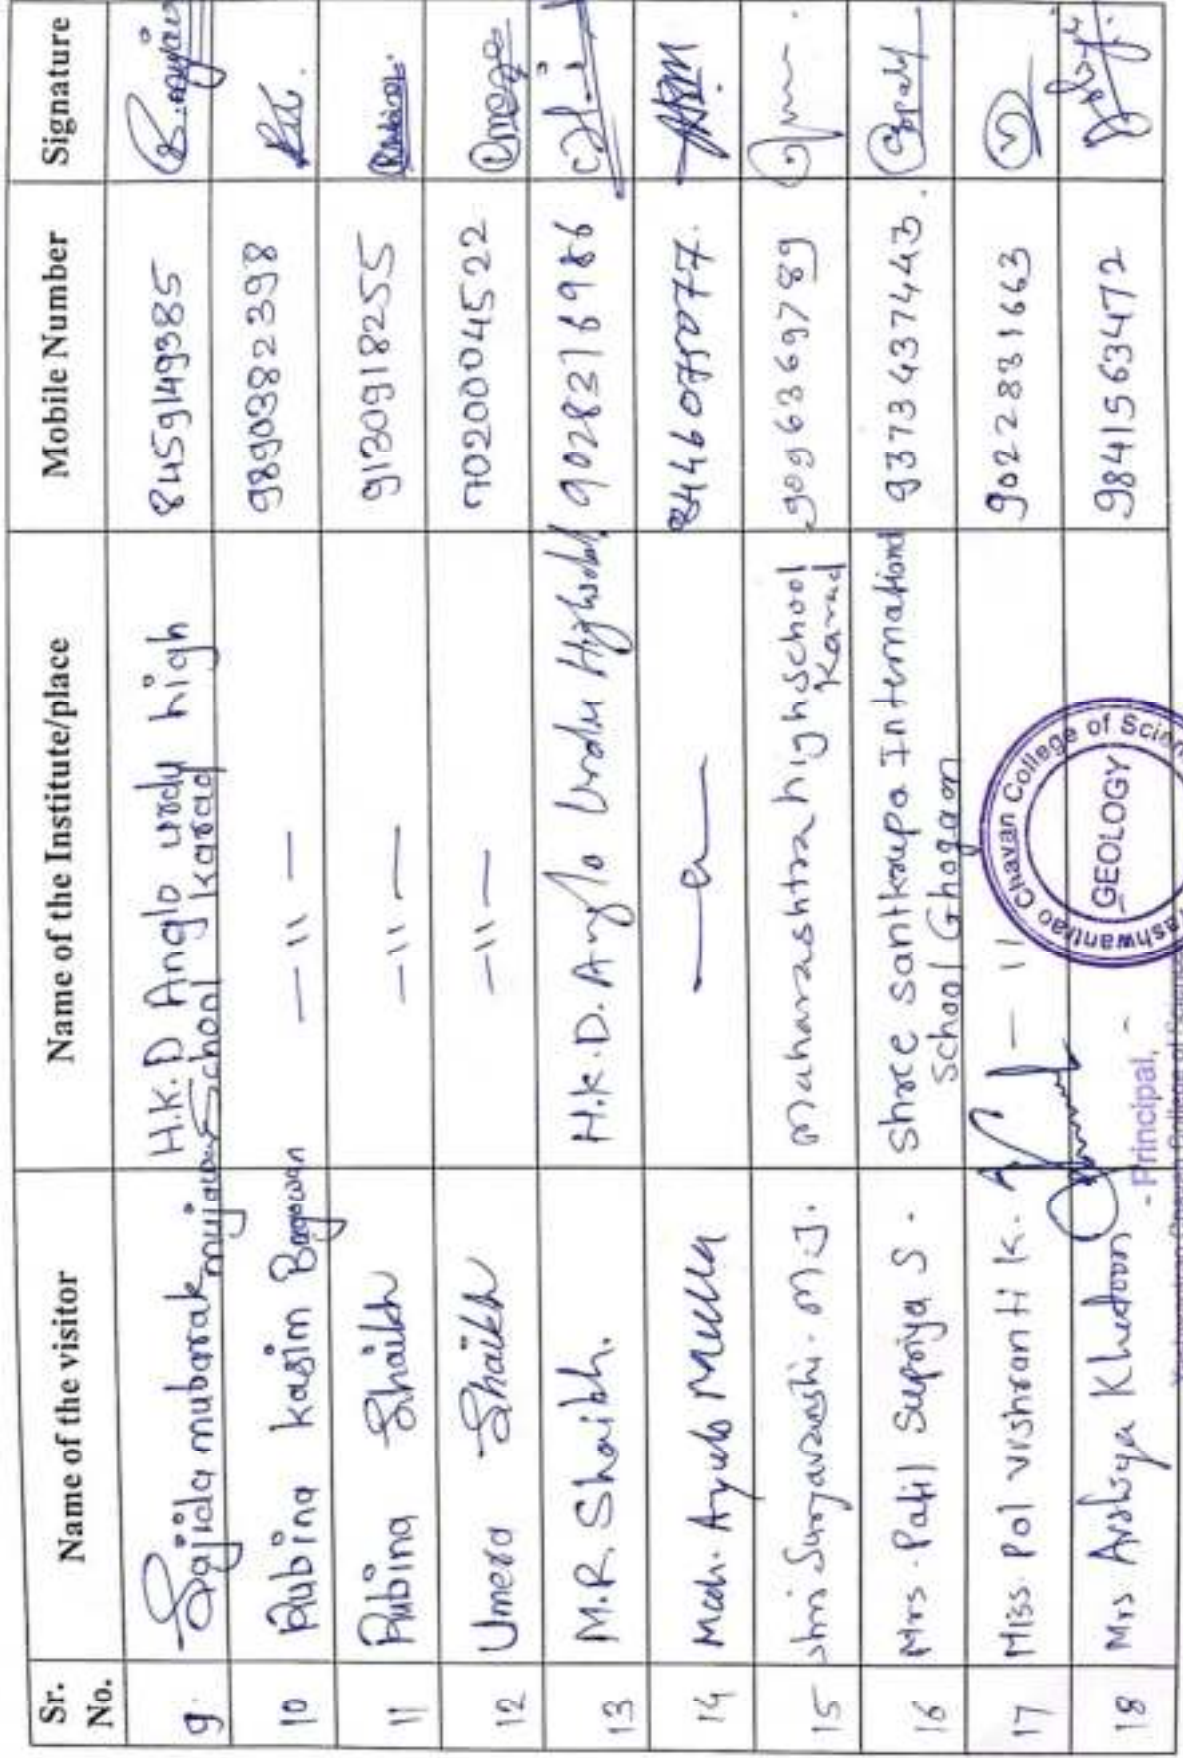 Sr. No. Name of the visitor Name of the Institute/place Mobile Number Signature
9. Sajida mubarak mujawar H.K.D Anglo urdu high School Karad 8459149385
10 Rubina kasim Bagawan — 11 — 9890382398
11 Rubina Shaikh — 11 — 9130918255 Rubina
12 Umera Shaikh — 11 — 7020004522 Umera
13 M.R. Shaikh. H.K.D. Anglo Urdu Highschool 9028376986
14 Moh. Ayub Mulla — 11 — 8446075077.
15 Shri Suryavanshi. M.J. Maharashtra high school Karad 9096369789
16 Mrs. Patil Supriya S. Shree Santkrupa International School Ghogaon 9373437443.
17 Miss. Pol Vishranti K. — 11 9022831663
18 Mrs Arshiya Khatoon 9841563472
Yashwantrao Chavan College of Science
GEOLOGY
Principal,
Yashwantrao Chavan College of Science